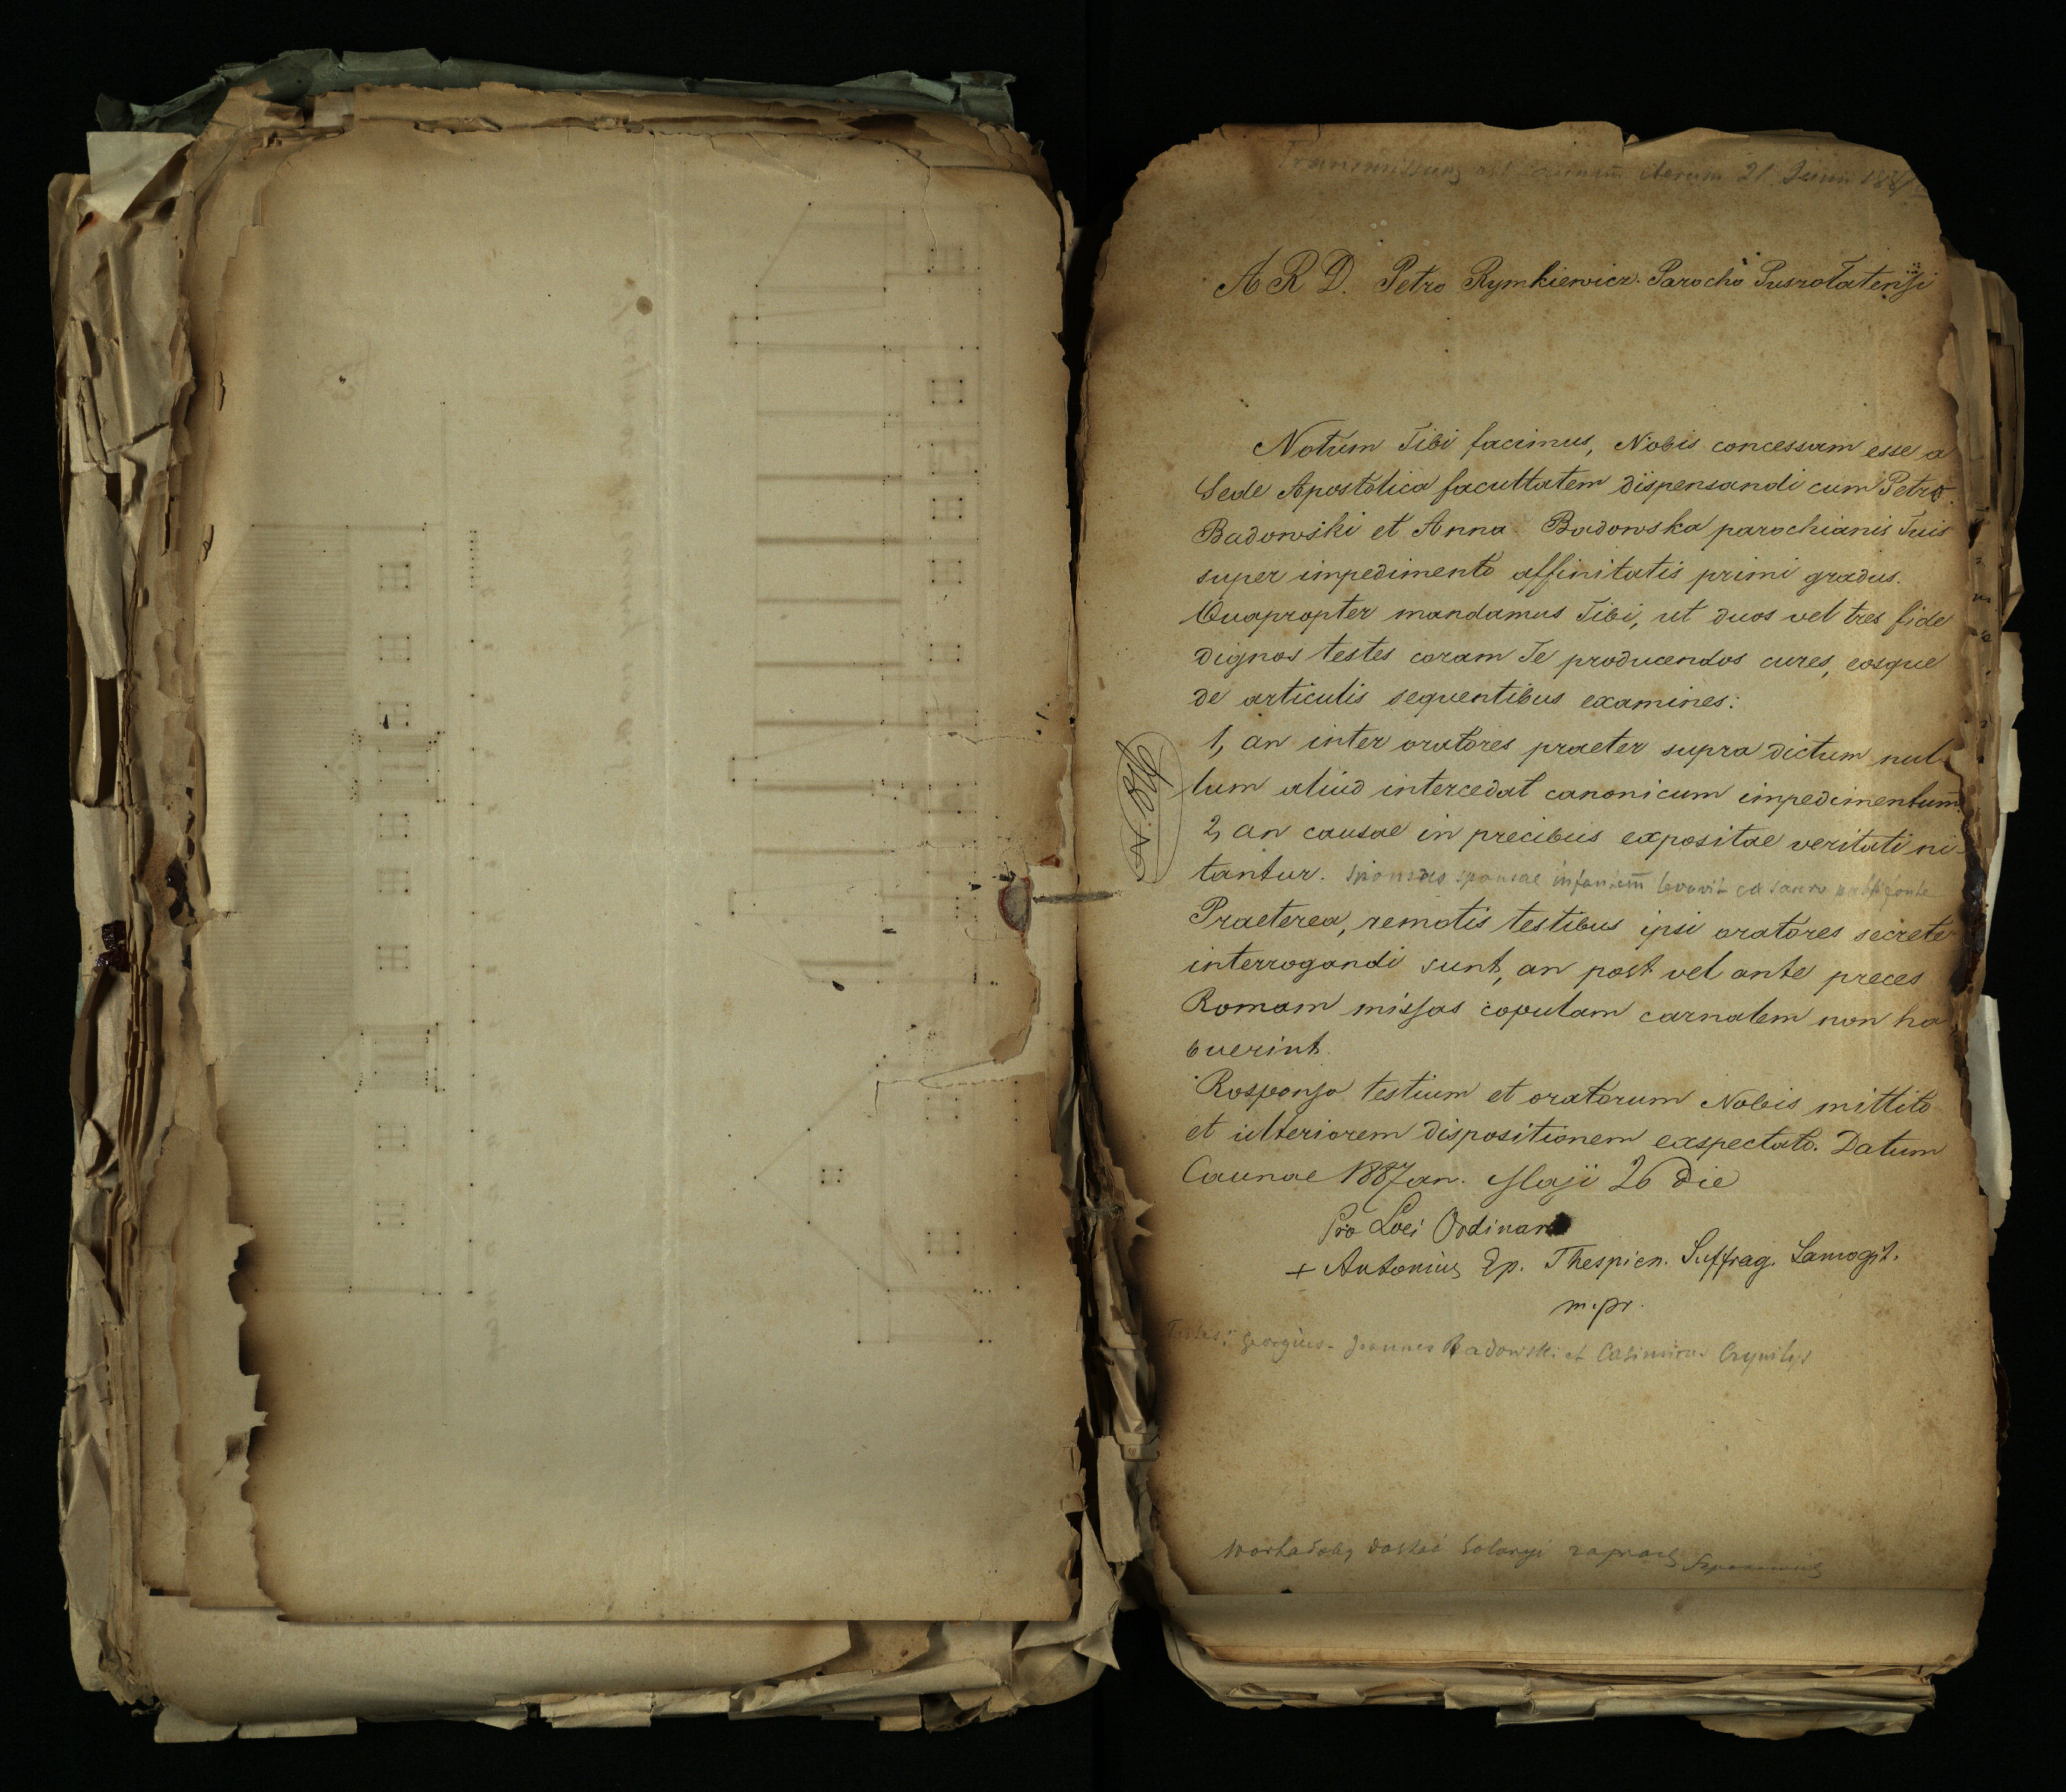 Transmissum est Caunam iterum 21 Junii 1887
A R D. Petro Rymkiewicz. Parocho Pusrotatensi
Notum Tibi facimus, Nobis concessam esse a
Sede Apostolica facultatem dispensandi cum Petro
Badowski et Anna Badowska parochianis Tuis
super impedimento affinitatis primi gradus.
Quapropter mandamus Tibi, ut duos vel tres fide
dignos testes coram Te producendos cures, eosque
de articulis sequentibus examines:
1, an inter oratores praeter supra dictum nul-
lum aliud intercedat canonicum impedimentum
2, an causae in precibus expositae veritati ni-
tantur. sponsus sponsae infantem levavit
Praeterea, remotis testibus ipsi oratores secrete
interrogandi sunt, an post vel ante preces
Romam missas copulam carnalem non ha
buerint.
Responsa testium et oratorum Nobis mittito
et ulteriorem dispositionem exspectato. Datum
Caunae 1887 an. Maji 26 die
Pro Loci Ordinar
+ Antonius Ep. Thespien. Suffrag. Samogit.
m.pr.
Testes: Georgius - Joannes Badowski et Casimirus